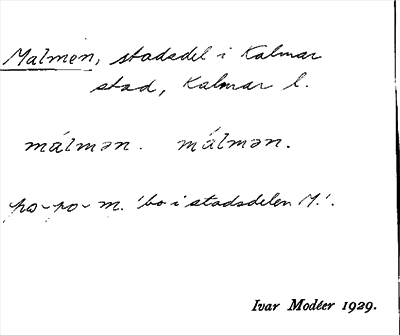 Malmen, stadsdel i Kalmar
stad, Kalmar l.
málmən. málmən.
po~po~ m. 'bo i stadsdelen M.'.
Ivar Modéer 1929.